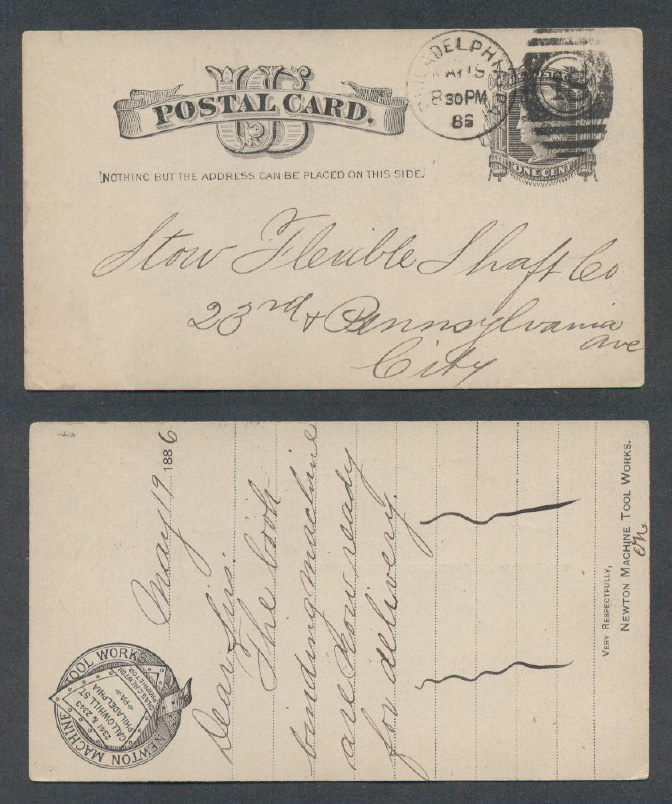 US
POSTAL CARD.
NOTHING BUT THE ADDRESS CAN BE PLACED ON THIS SIDE.
PHILADELPHIA
MAY 19
8 30 PM
86
ONE CENT
Stow Flexible Shaft Co
23rd & Pennsylvania
ave
City
NEWTON MACHINE TOOL WORKS
2341 & 2343
CALLOWHILL ST
PHILADELPHIA
PA
May 19 1886
Dear Sirs.
The book
binding machine
are now ready
for delivery.
VERY RESPECTFULLY,
NEWTON MACHINE TOOL WORKS.